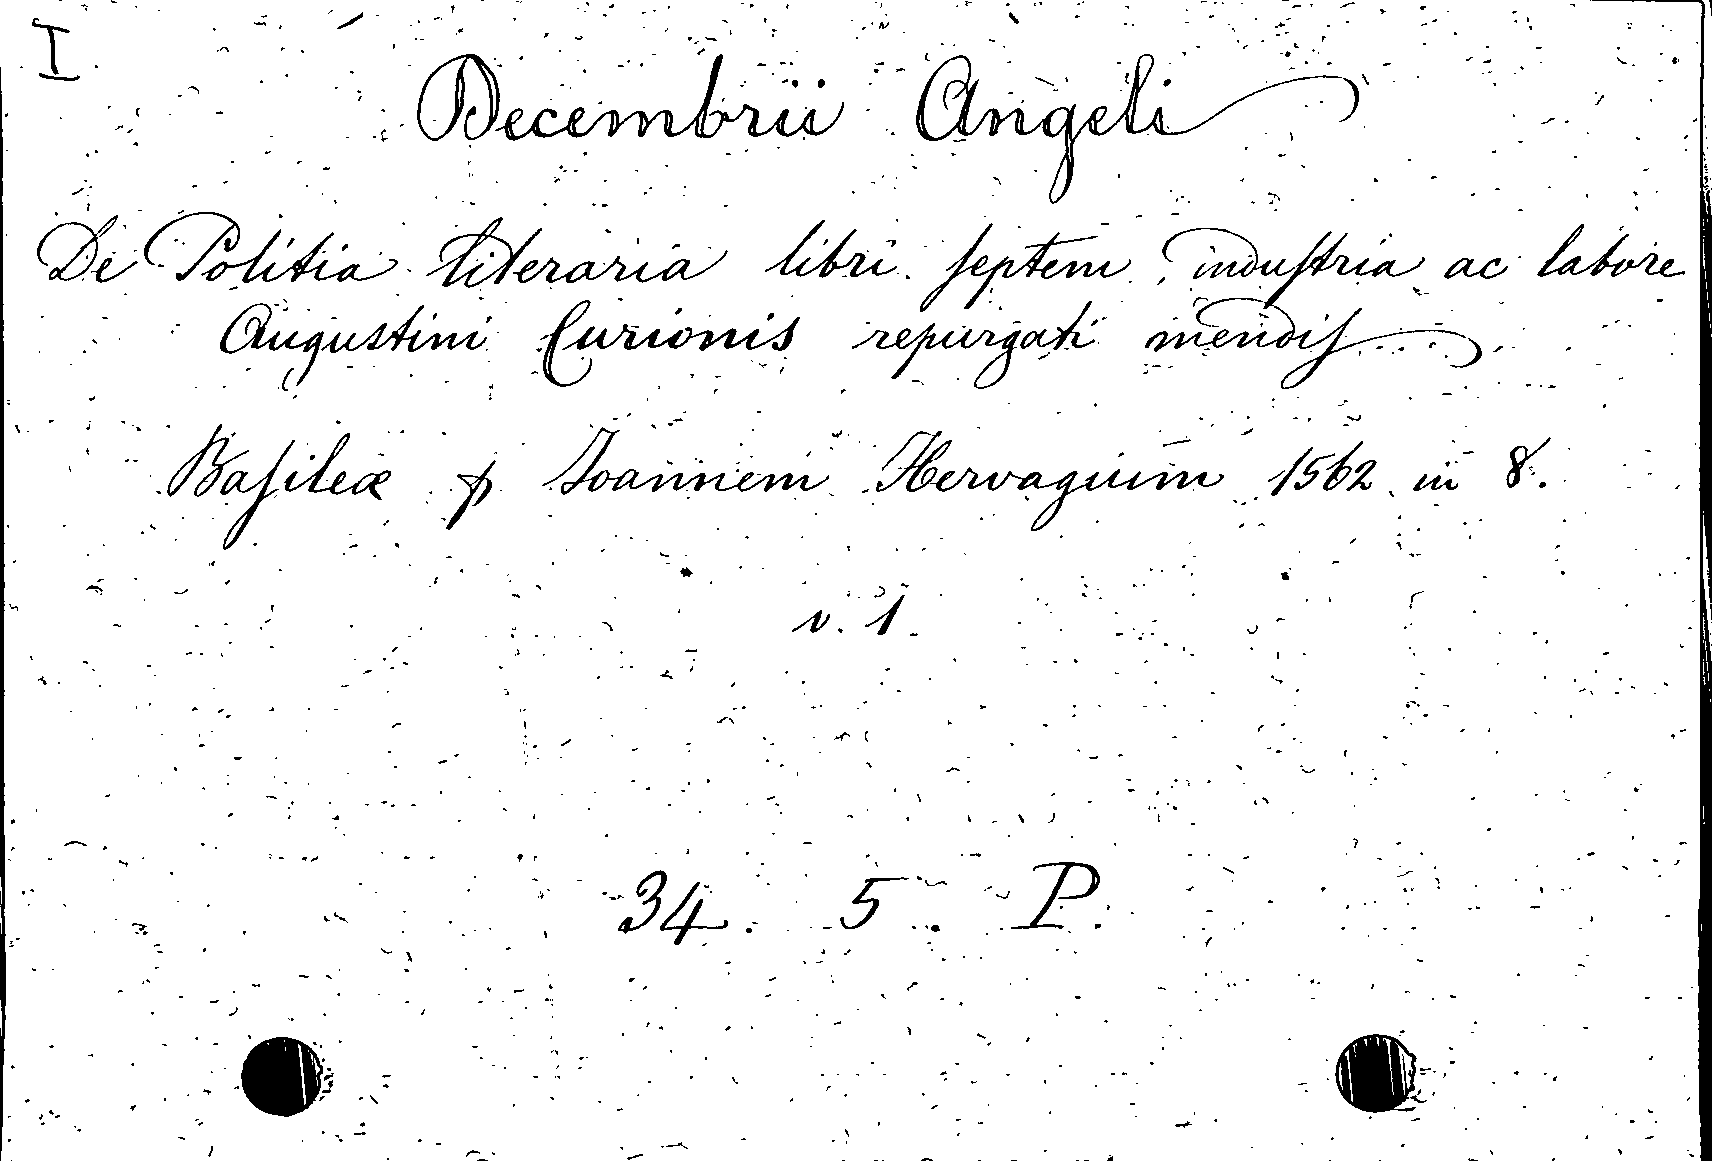 I
Decembrii Angeli
De Politia literaria libri ſeptem, induſtria ac labore
Augustini Curionis repurgati mendiſ
Baſileæ ꝑ Joannem Hervagium 1562 in 8.
v. 1
34. 5. P.